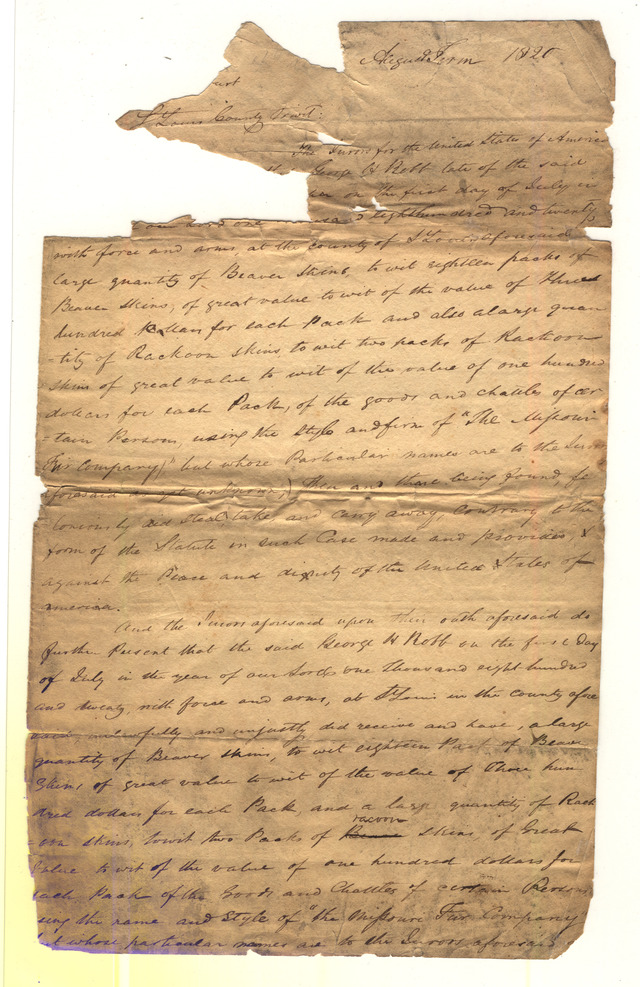 August Term 1820
urt
St Louis County Court:
The Jurors for the United States of America
George H Robb late of the said
on the first day of July in
our Lord one thousand eight hundred and twenty
with force and arms, at the county of St Louis aforesaid
large quantity of Beaver Skins, to wit eighteen packs of
Beaver Skins, of great value to wit of the value of three
hundred dollars for each Pack and also a large quan
-tity of Rackoon skins to wit two packs of Rackoon
skins of great value to wit of the value of one hundred
dollars for each Pack, of the goods and chattles of cer
-tain Persons, using the style and firm of "The Missouri
Fur Company," but whose Particular names are to the Jurors
aforesaid as yet unknown,) then and there being found, fe
-loniously did steal take, and carry away, contrary to the
form of the Statute in such Case made and provided, &
against the Peace and dignity of the United States of
america.
And the Jurors aforesaid upon their oath aforesaid do
further Present that the said George H Robb on the first Day
of July in the year of our Lord one thousand eight hundred
and twenty, with force and arms, at St Louis in the county afore
said, unlawfully and unjustly did receive and have, a large
quantity of Beaver skins, to wit eighteen Packs of Beaver
Skins of great value to wit of the value of Three hun
dred dollars for each Pack, and a large quantity of Rack
-oon skins, to wit two Packs of racoon skins, of Great
Value to wit of the value of one hundred dollars for
each Pack of the Goods and Chattles of certain Persons
using the name and Style of "the Missouri Fur Company
but whose particular names are to the Jurors aforesaid